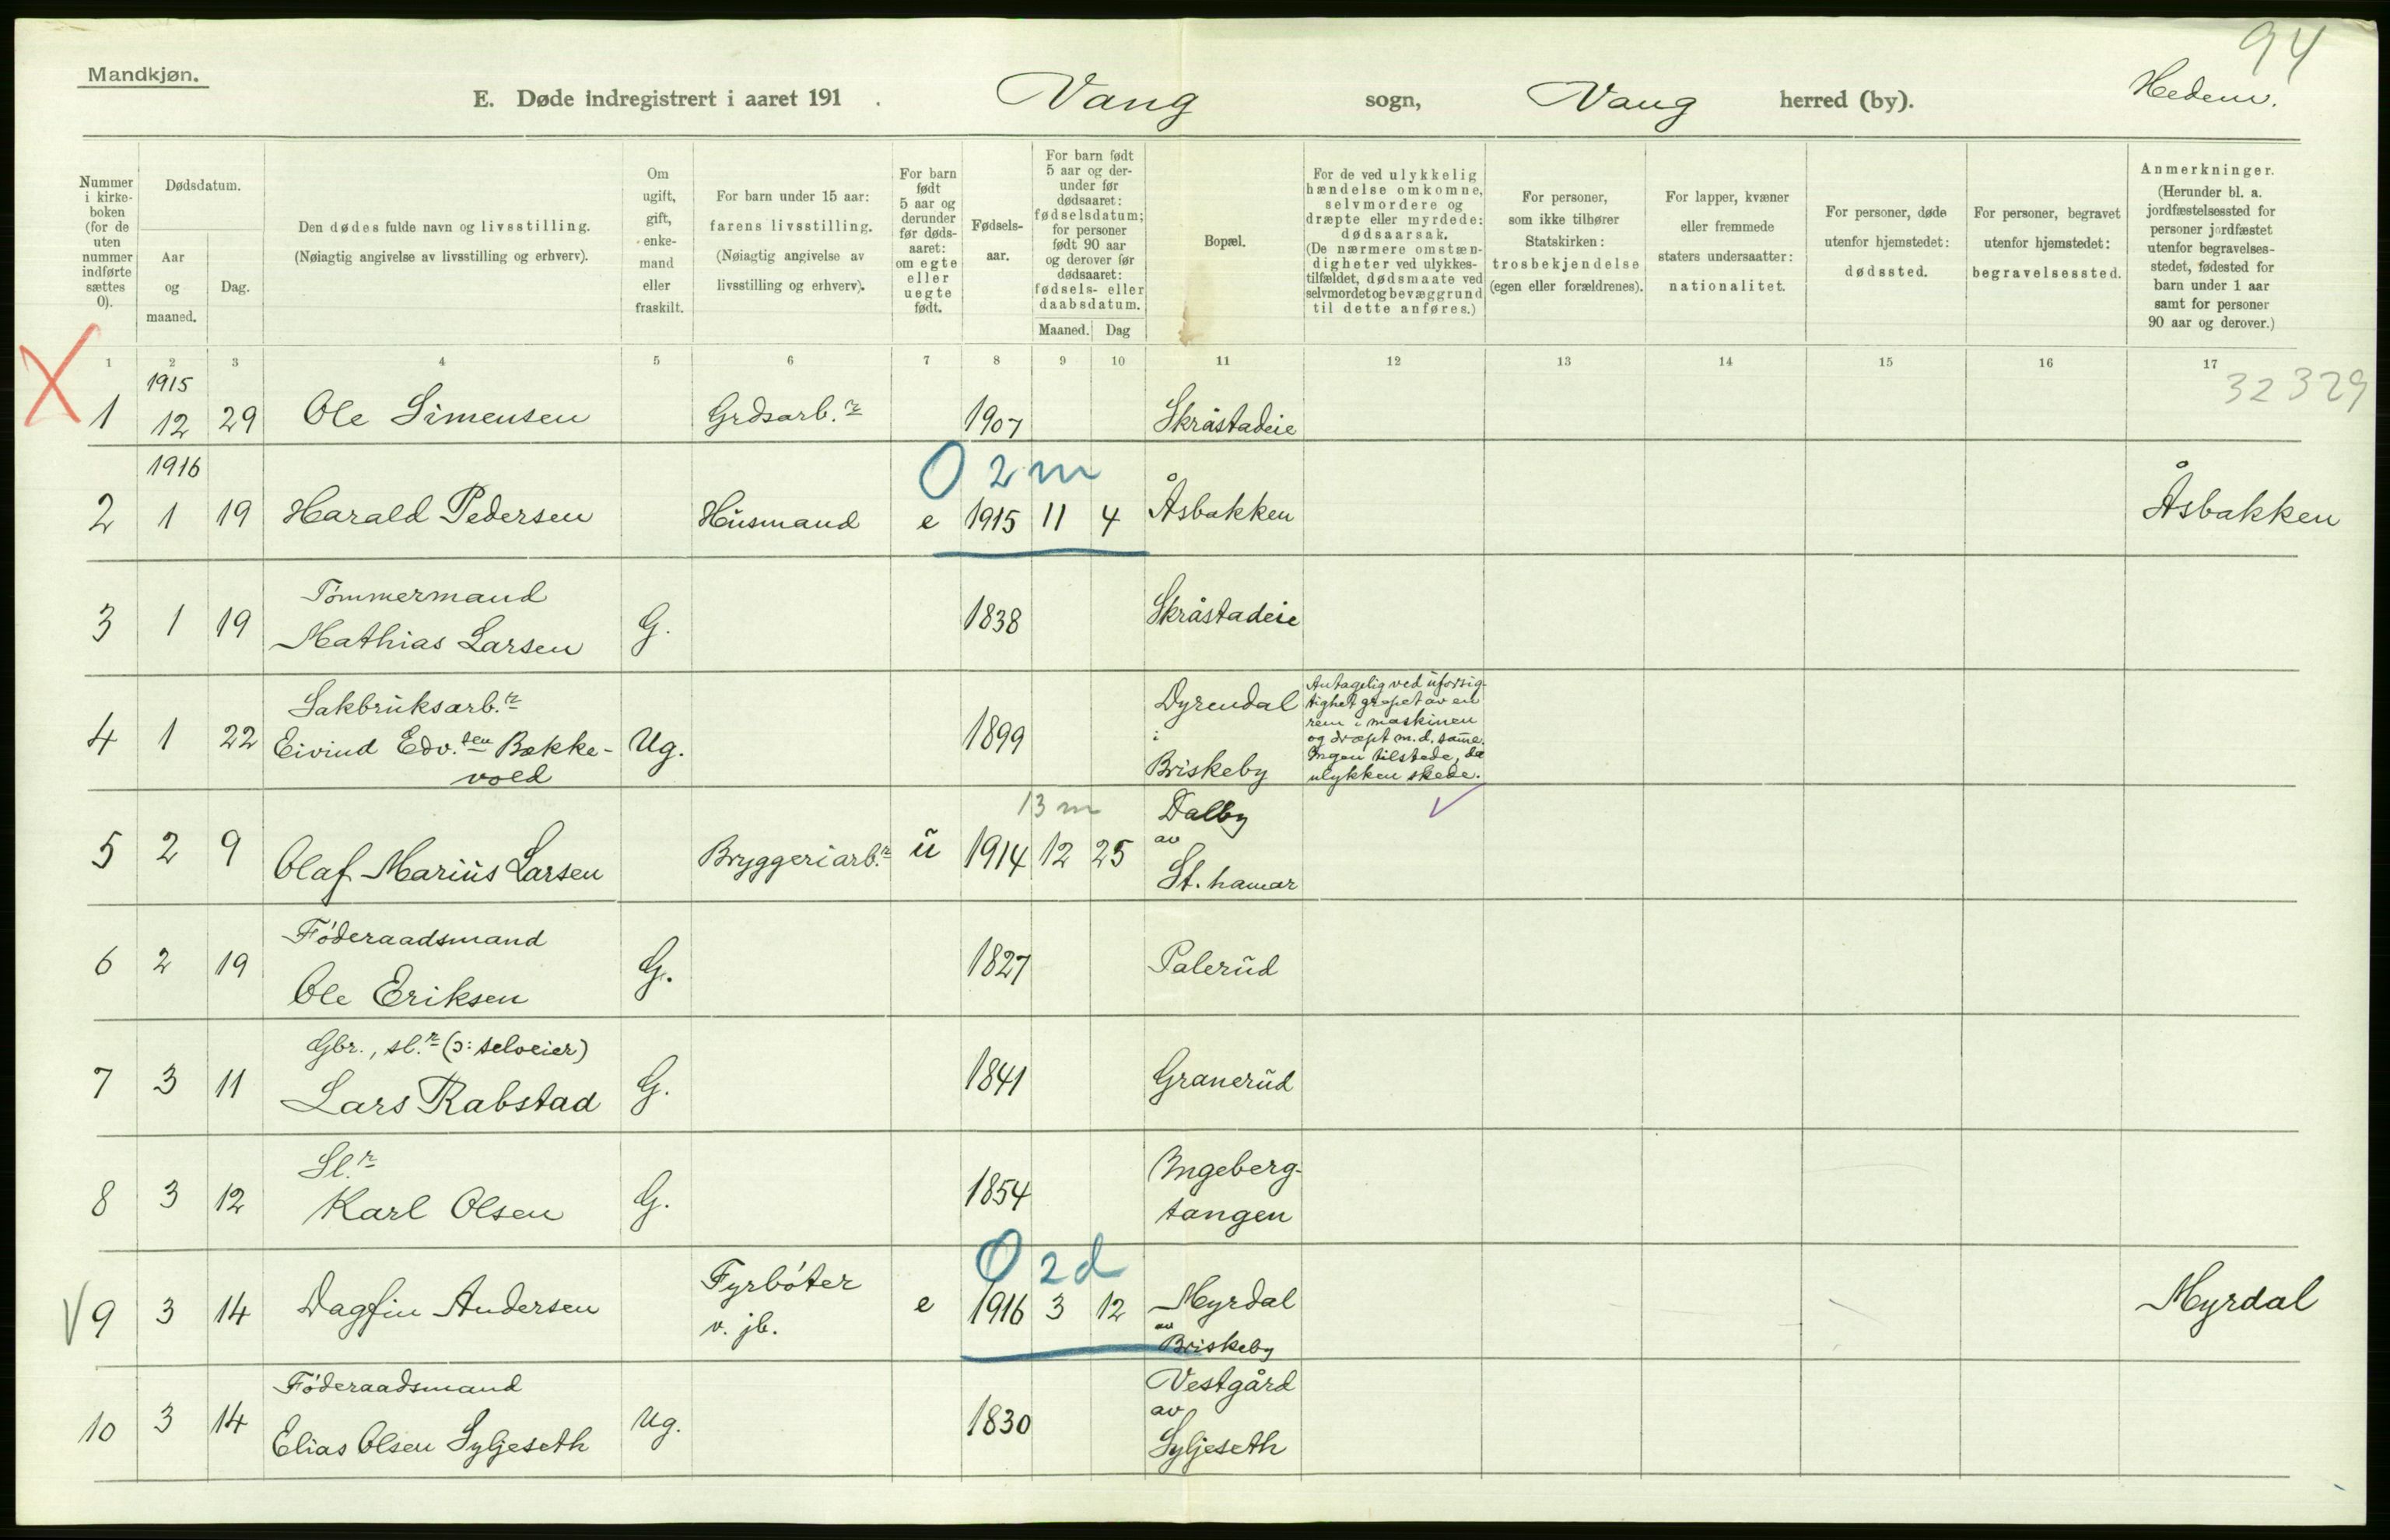 94
Mandkjøn.
E. Døde indregistrert i aaret 191 . Vang sogn, Vang herred (by). Hedem.
Nummer i kirke-boken (for de uten nummer indførte sættes 0).
Dødsdatum.
Aar og maaned.
Dag.
Den dødes fulde navn og livsstilling.
(Nøiagtig angivelse av livsstilling og erhverv).
Om ugift, gift, enke-mand eller fraskilt.
For barn under 15 aar: farens livsstilling.
(Nøiagtig angivelse av livsstilling og erhverv).
For barn født 5 aar og derunder før døds-aaret: om egte eller uegte født.
Fødsels-aar.
For barn født 5 aar og der-under før dødsaaret: fødselsdatum; for personer født 90 aar og derover før dødsaaret: fødsels- eller daabsdatum.
Maaned. Dag
Bopæl.
For de ved ulykkelig hændelse omkomne, selvmordere og dræpte eller myrdede: dødsaarsak.
(De nærmere omstæn-digheter ved ulykkes-tilfældet, dødsmaate ved selvmordet og bevæggrund til dette anføres.)
For personer, som ikke tilhører Statskirken: trosbekjendelse (egen eller forældrenes).
For lapper, kvæner eller fremmede staters undersaatter: nationalitet.
For personer, døde utenfor hjemstedet: dødssted.
For personer, begravet utenfor hjemstedet: begravelsessted.
Anmerkninger.
(Herunder bl. a. jordfæstelsessted for personer jordfæstet utenfor begravelses-stedet, fødested for barn under 1 aar samt for personer 90 aar og derover.)
1 2 3 4 5 6 7 8 9 10 11 12 13 14 15 16 17
X
1915
32329
1 12 29 Ole Simensen Grdsarb.r 1907 Skråstadeie
1916
0 2 m
2 1 19 Harald Pedersen Husmand e 1915 11 4 Åsbakken Åsbakken
Tømmermand
3 1 19 Mathias Larsen G. 1838 Skråstadeie
Sakbruksarb.r
4 1 22 Eivind Edv.sen Bække-
vold
Ug. 1899
Dyrendal
i
Briskeby
Antagelig ved uforsig-
tighet grepet av en
rem i maskinen
og dræpt m.d. same.
Ingen tilstede, da
ulykken skede.
13 m
5 2 9 Olaf Marius Larsen Bryggeriarb.r u 1914 12 25
Dalby
av
St. hamar
Föderaadsmand
6 2 19 Ole Eriksen G. 1827 Palerud
Gbr., sl.r (ɔ: selveier)
7 3 11 Lars Rabstad G. 1841 Granerud
Sl.r
8 3 12 Karl Olsen G. 1854
Ingeberg-
tangen
0 2 d
9 3 14 Dagfin Andersen
Fyrböter
v. jb.
e 1916 3 12
Myrdal
av
Briskeby
Myrdal
Föderaadsmand
10 3 14 Elias Olsen Syljeseth Ug. 1830
Vestgård
av
Syljeseth